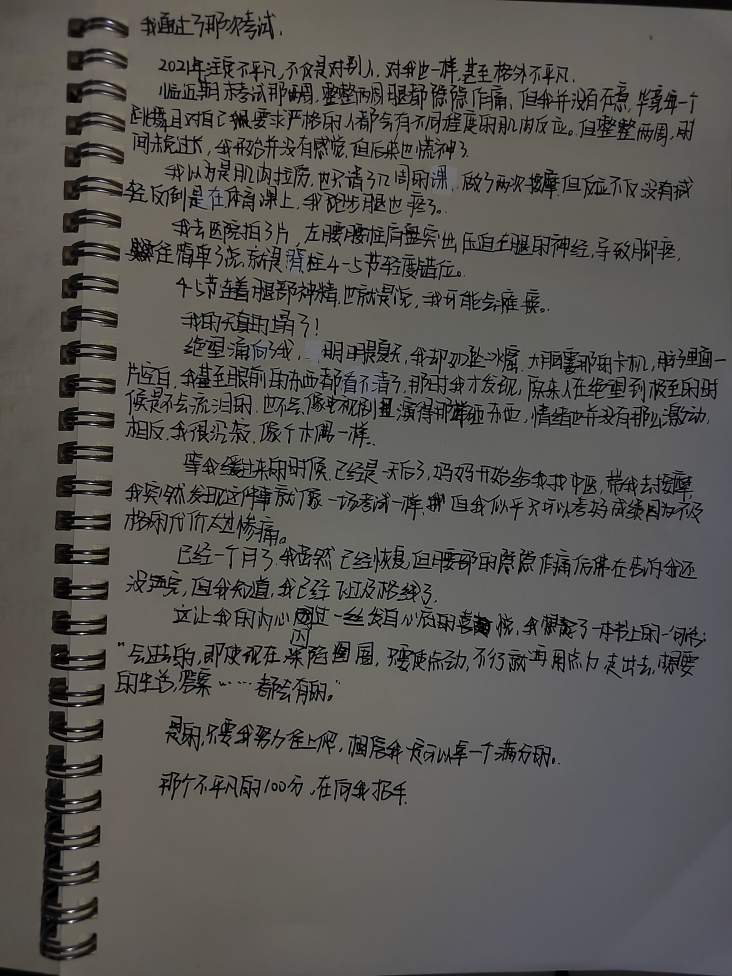 我通过了那次考试.
2021年注定不平凡,不仅是对别人,对我也一样,甚至格外不平凡.
临近期末考试那两周,整整两周腿都隐隐作痛,但我并没有在意,毕竟每一个
跳舞且对自己要求严格的人都会有不同程度的肌肉反应。但整整两周,时
间未免过长,我开始并没有感觉,但后来也慌神了.
我以为是肌肉拉伤,也只请了几周的课,做了两次按摩,但反应不仅没有减
轻,反倒是在体育课上,我跑步腿也疼了.
我去医院拍了片,左腰腰椎间盘突出,压迫左腿的神经,导致脚疼,
往简单了说,就是脊柱4-5节轻度错位。
4-5节连着腿部神精,也就是说,我可能会瘫痪。
我的天真的塌了!
绝望涌向了我,明明是夏天,我却如坠冰窟,大脑霎那的卡机,脑子里面一
片空白,我甚至眼前的东西都看不清了,那时我才发现,原来人在绝望到极至的时
候是不会流泪的,也不会像电视剧里演得那样砸东西,情绪也并没有那么激动,
相反,我很沉寂,像个木偶一样.
等我缓过来的时候,已经是一天后了,妈妈开始给我找中医,带我去按摩,
我突然发现这件事就像一场考试一样,但我似乎只可以考好成绩因为不及
格的代价太过惨痛。
已经一个月了,我虽然已经恢复,但腰部的隐隐作痛仿佛在告诉我还
没考完,但我知道,我已经飞过及格线了.
这让我的内心闪过一丝发自心底的喜悦,我想起了一本书上的一句话:
"会过去的,即使现在深陷囹圄,不要使点劲,不行就再用点力走出去,想要
的生活,答案……都会有的。"
是的,只要我努力往上爬,相信我是可以拿一个满分的.
那个不平凡的100分,在向我招手.